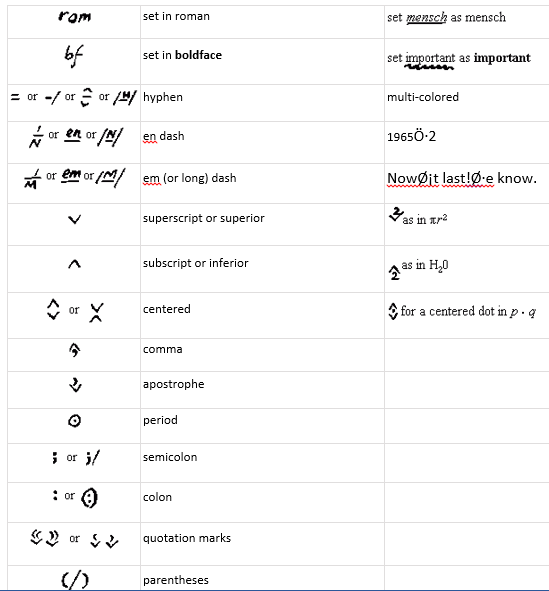 rom set in roman set mensch as mensch
bf set in boldface set important as important
= or -/ or = or /H/ hyphen multi-colored
1/N or en or /N/ en dash 1965Ö·2
1/M or em or /M/ em (or long) dash NowØ¡t last!Ø·e know.
∨ superscript or superior 2 as in πr²
∧ subscript or inferior 2 as in H₂0
or centered for a centered dot in p · q
, comma
' apostrophe
⊙ period
; or ;/ semicolon
: or : colon
“ ” or ‘ ’ quotation marks
(/) parentheses